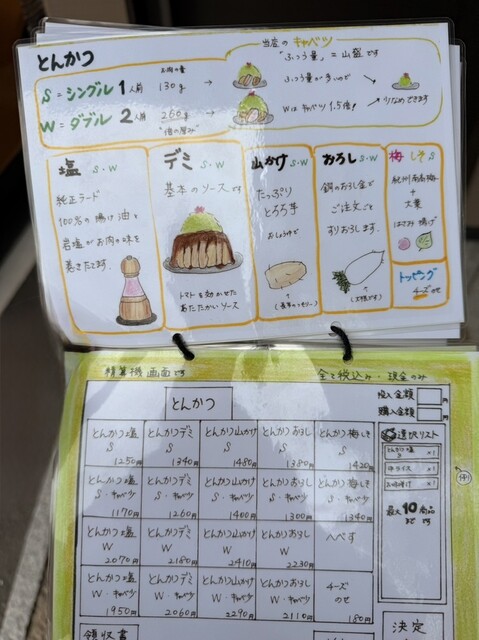 とんかつ
S = シングル 1人前 お肉の量 130g →
W = ダブル 2人前 260g "倍の厚み" →
当店のキャベツ
「ふつう量」= 山盛です
ふつう量が多いので →
Wはキャベツ1.5倍!
少なめできます
塩 S・W
純正ラード
100%の揚げ油と
岩塩がお肉の味を
惹きたてます。
デミ S・W
基本のソースです
トマトを効かせた
あたたかいソース
山かけ S・W
たっぷり
とろろ芋
お醤油で
おろし S・W
銅のおろし金で
ご注文ごと
すりおろします。
梅しそ S
紀州南高梅
+
大葉
はさみ揚げ
トッピング
チーズのせ
精算機画面です
全て税込み・現金のみ
とんかつ
投入金額 円
購入金額 円
とんかつ塩 S 1250円
とんかつデミ S 1340円
とんかつ山かけ S 1480円
とんかつおろし S 1380円
とんかつ梅しそ S 1420円
とんかつ塩 S・キャベ少 1170円
とんかつデミ S・キャベ少 1260円
とんかつ山かけ S・キャベ少 1400円
とんかつおろし S・キャベ少 1300円
とんかつ梅しそ S・キャベ少 1340円
とんかつ塩 W 2070円
とんかつデミ W 2180円
とんかつ山かけ W 2410円
とんかつおろし W 2230円
とんかつ塩 W・キャベ少 1950円
とんかつデミ W・キャベ少 2060円
とんかつ山かけ W・キャベ少 2290円
とんかつおろし W・キャベ少 2110円
チーズ のせ 180円
選択リスト
とんかつ塩 S ×1
×1
×1
(例)
最大10商品
まで です
領収書
決定